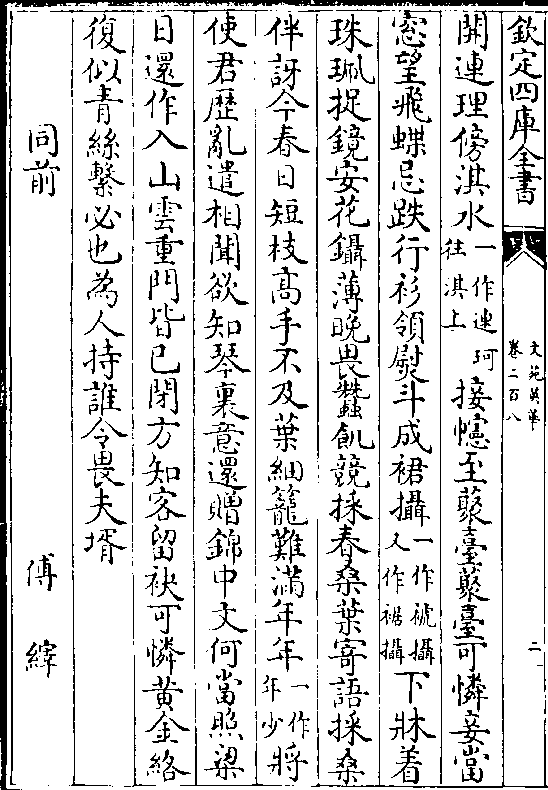 欽定四庫全書
文苑英華
卷二百八
二
開連理傍淇水一作連珂往淇上接幰至藂臺藂臺可憐妾當
窓望飛蝶忌跌行衫領熨斗成裙攝一作褫攝又作裾攝下牀着
珠珮捉鏡安花鑷薄晚畏蠶飢競採春桑葉寄語採桑
伴訝今春日短枝高手不及葉細籠難滿年年一作年少將
使君歷亂遣相聞欲知琴裏意還贈錦中文何當照梁
日還作入山雲重門皆已閉方知客留袂可憐黃金絡
復似青絲繫必也為人持誰令畏夫壻
同前 傅縡